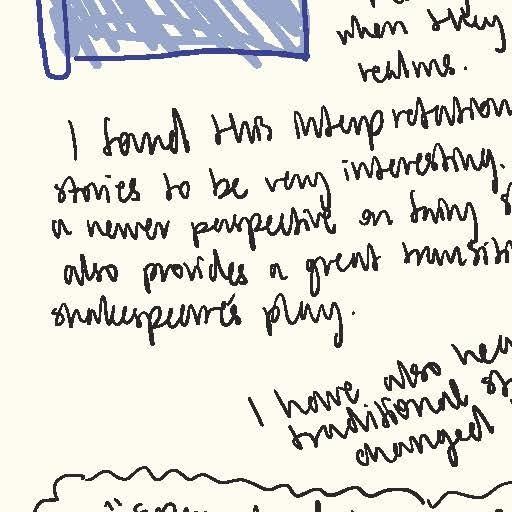 when they
realms.
I found this interpretation
stories to be very interesting.
a newer perspective on fairy
also provides a great
shakespeare's play.
I have also
traditional
changed